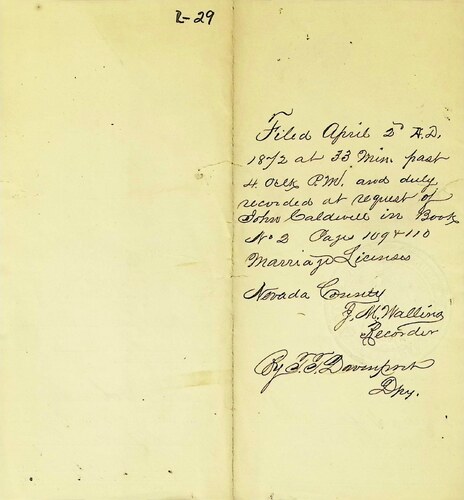 L-29
Filed April 2d A.D.
1872 at 33 Min. past
4 Oclk P.M. and duly
recorded at request of
John Caldwell in Book
No 2 Page 109 & 110
Marriage Licenses
Nevada County
J. M. Walling
Recorder
By T. T. Davenport
Dpy.